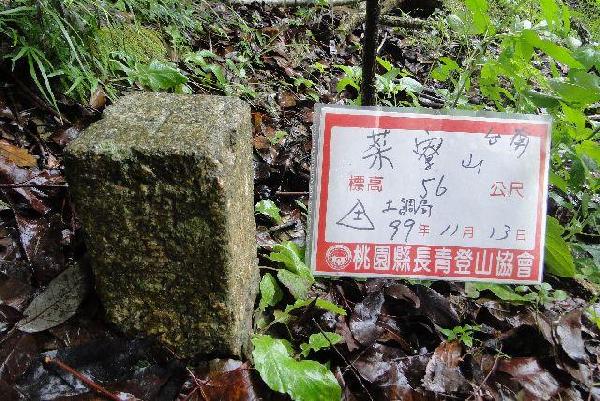 台南
菜寮山
標高 56 公尺
土調局
99年11月13日
桃園縣長青登山協會